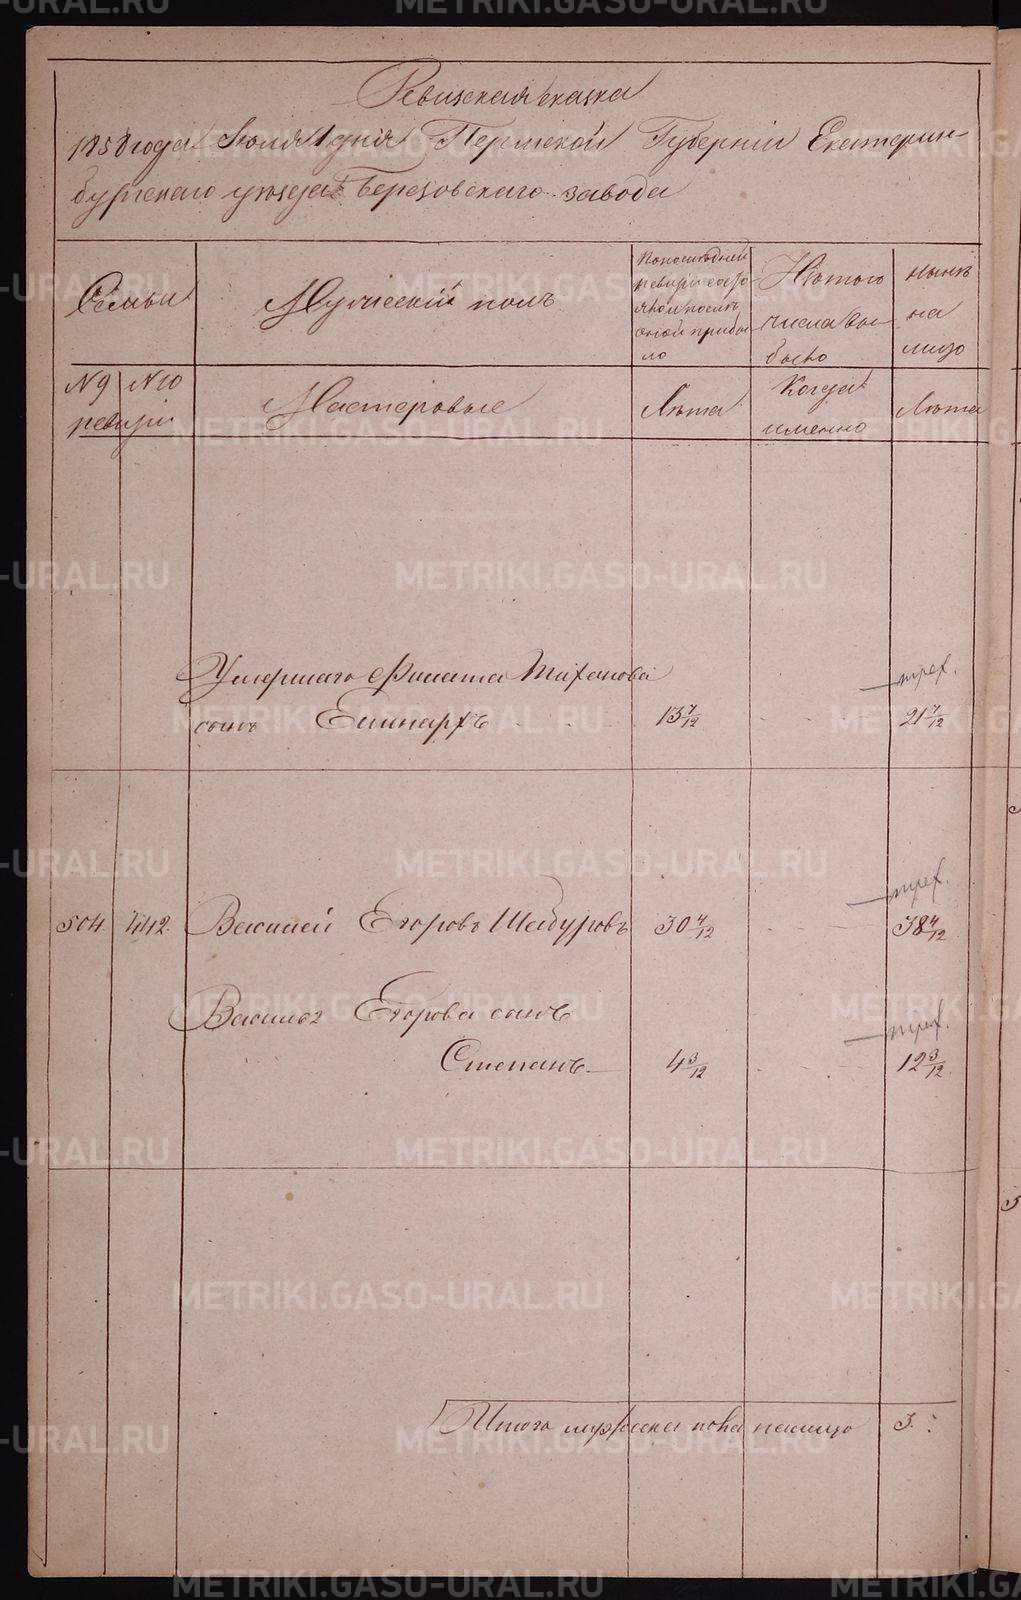 Ревизская сказка
1858 года Июля 1 дня Пермской Губернiи Екатерин-
бургскаго уѣзда Березовскаго завода
Семьи
Мужескiй полъ
По последней
ревизiи состо-
яло и послѣ
оной прибы-
ло
Изъ того
числа вы-
было
нынѣ
на
лицо
N 9
N 10
ревизiи
Мастеровые
Лѣта
Когда
именно
Лѣта
Умершаго Филата Тиханова
сынъ Епинархъ
13 7/12
21 7/12
504
442.
Василей Егоровъ Шабуровъ
30 4/12
38 4/12
Василья Егорова сынъ
Степанъ
4 3/12
12 3/12
Итого мужеска пола налицо
3.
METRIKI.GASO-URAL.RU